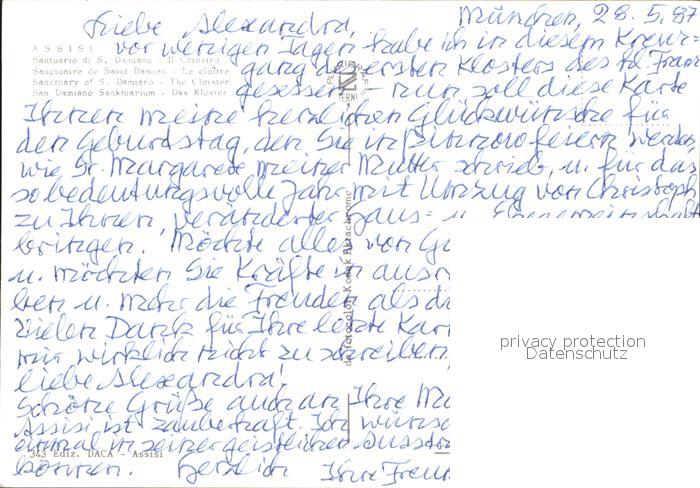 München, 28.5.87
Liebe Alexandra,
vor wenigen Tagen habe ich in diesem Kreuz=
gang des ersten Klosters des hl. Franz
gesessen – nun soll diese Karte
Ihnen meine herzlichen Glückwünsche für
den Geburtstag, den Sie in feiern werden,
wie Sr. Margarete meiner Mutter schrieb, u. für das
so bedeutungsvolle Jahr mit Umzug von Christoph
zu Ihnen, veränderter Haus= u.
bringen. Möchte alles von
u. möchten Sie Kräfte
ben u. mehr die Freuden als
Vielen Dank für Ihre letzte
mir wirklich nicht zu schreiben,
liebe Alexandra!
Schöne Grüße auch an Ihre
Assisi ist zauberhaft. Ich
einmal in seiner geistlichen
können. Herzlich Ihre
ASSISI
Santuario di S. Damiano - Il Chiostro
Sanctuaire de Saint Damien - Le cloître
Sanctuary of S. Damiano - The Cloister
San Damiano Sanktuarium - Das Kloster
TERNI
da fotocolor Kodak Ektachrome
343 Ediz. DACA - Assisi
privacy protection
Datenschutz